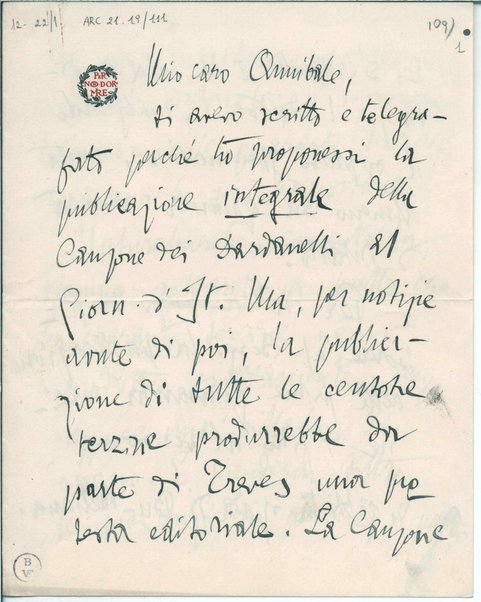 12-22/1 ARC 21.19/111
109)
1
PER
NON DOR
MIRE
Mio caro Annibale,
ti avevo scritto e telegra-
fato perché tu proponessi la
publicazione integrale della
Canzone dei Dardanelli al
Giorn. d' It. Ma, per notizie
avute di poi, la publica-
zione di tutte le centotre
terzine produrrebbe da
parte di Treves una pro
testa editoriale. La Canzone
B
VE